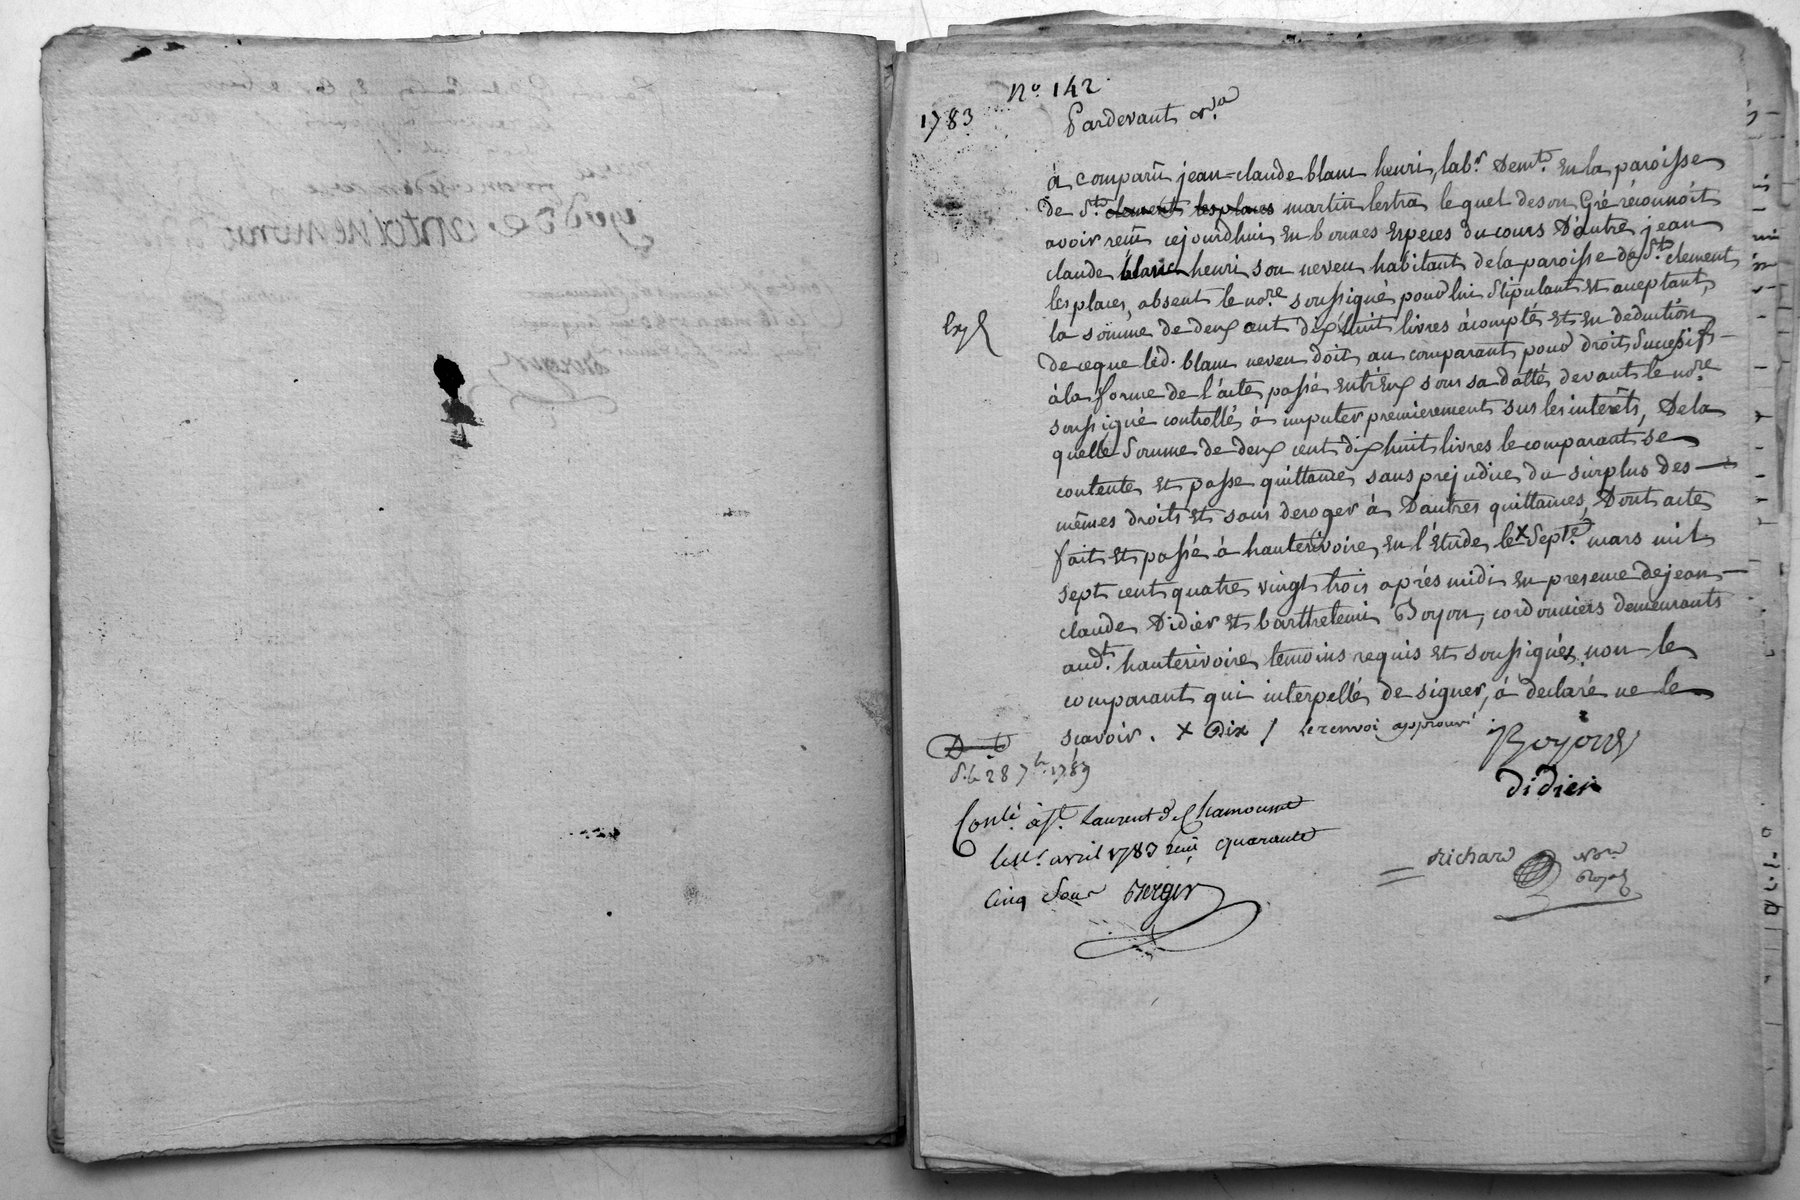 N.º 142
1783
Pardevant &ª
à comparû jean=claude blanc henri, labr. demt. en la paroisse
de St. clement les places martin lestra lequel de son Gré réconnoit
avoir reçû cejourdhui en bonnes Especes du cours D'autre jean
claude blanc henri son neveu habitant de la paroisse de St. clement
les places, absent le nore. soussigné pour lui stipulant et acceptant,
la somme de deux cent dix huit livres àcompte et en deduction
de ceque led. blanc neveu doit au comparant pour droit Successif
à la forme de l'acte passé entr'Eux sous sa datte devant le nore.
soussigné controllé, à imputer premierement sur les interêts, De la
quelle Somme de deux cent dix huit livres le comparant se
contente et passe quittance, sans prejudice du surplus des
mêmes droits et sans deroger à D'autres quittances, Dont acte
fait et passé à hauterivoire, en l'étude, le x Septe. mars mil
sept cent quatre vingt trois après midi en presence de jean
claude Didier et barthelemi Boyon, cordonniers demeurants
aud. hauterivoire, temoins requis et soussignés, non le
comparant qui interpellé de signer, à declaré ne le
sçavoir. x Dix / le renvoi approuvé
Exp
Boyon
didier
richard nore royal
D. le 28 7bre. 1789
Conlé. à St. Laurent de Chamousset
le 1er. avril 1783 reçu quarante
Cinq Sous Berger